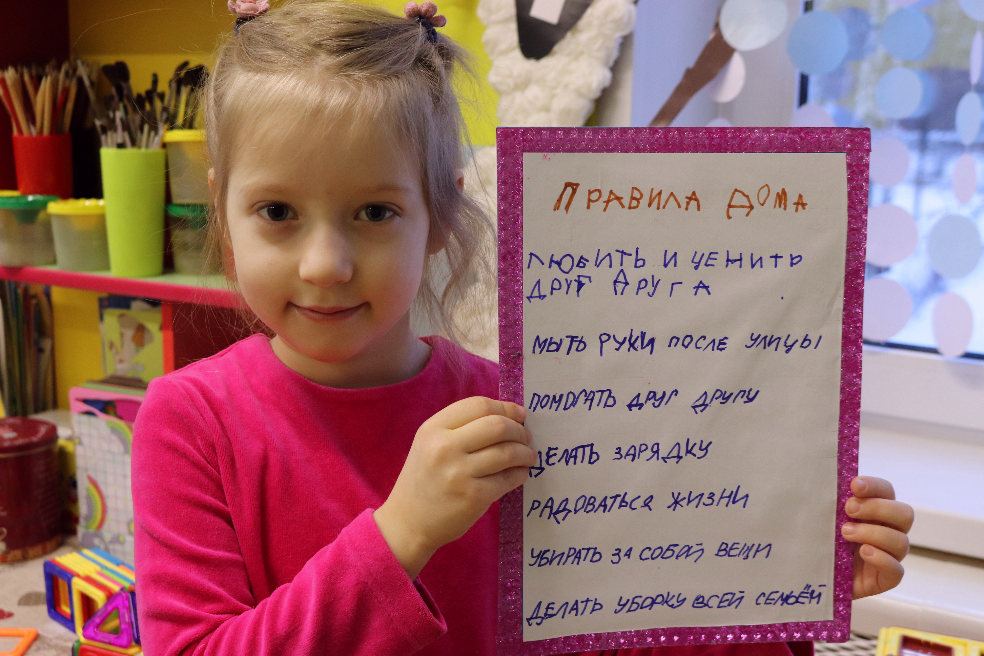 ПРАВИЛА ДОМА
ЛЮБИТЬ И ЦЕНИТЬ
ДРУГ ДРУГА
МЫТЬ РУКИ ПОСЛЕ УЛИЦЫ
ПОМОГАТЬ ДРУГ ДРУГУ
ДЕЛАТЬ ЗАРЯДКУ
РАДОВАТЬСЯ ЖИЗНИ
УБИРАТЬ ЗА СОБОЙ ВЕЩИ
ДЕЛАТЬ УБОРКУ ВСЕЙ СЕМЬЁЙ